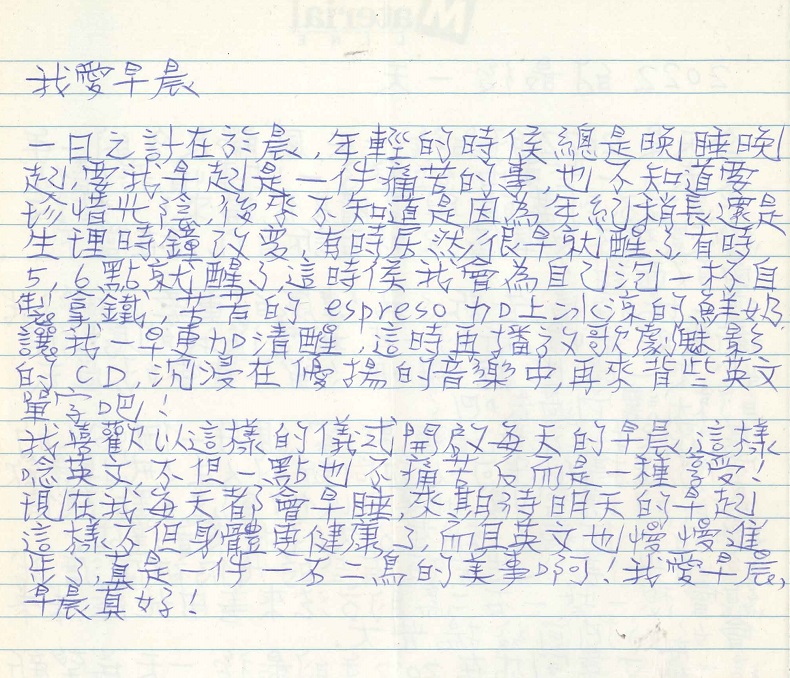 我愛早晨
一日之計在於晨,年輕的時侯總是晚睡晚
起,要我早起是一件痛苦的事,也不知道要
珍惜光陰,後來不知道是因為年紀稍長還是
生理時鐘改變,有時居然很早就醒了,有時
5,6點就醒了,這時侯我會為自己泡一杯自
製拿鐵,苦苦的espreso加上冰涼的鮮奶,
讓我一早更加清醒,這時再播放歌劇魅影
的CD,沉浸在優揚的音樂中,再來背些英文
單字吧!
我喜歡以這樣的儀式開啟每天的早晨,這樣
唸英文,不但一點也不痛苦反而是一種享受!
現在我每天都會早睡,來期待明天的早起
這樣不但身體變健康了,而且英文也慢慢進
步了,真是一件一石二鳥的美事啊!我愛早晨,
早晨真好!